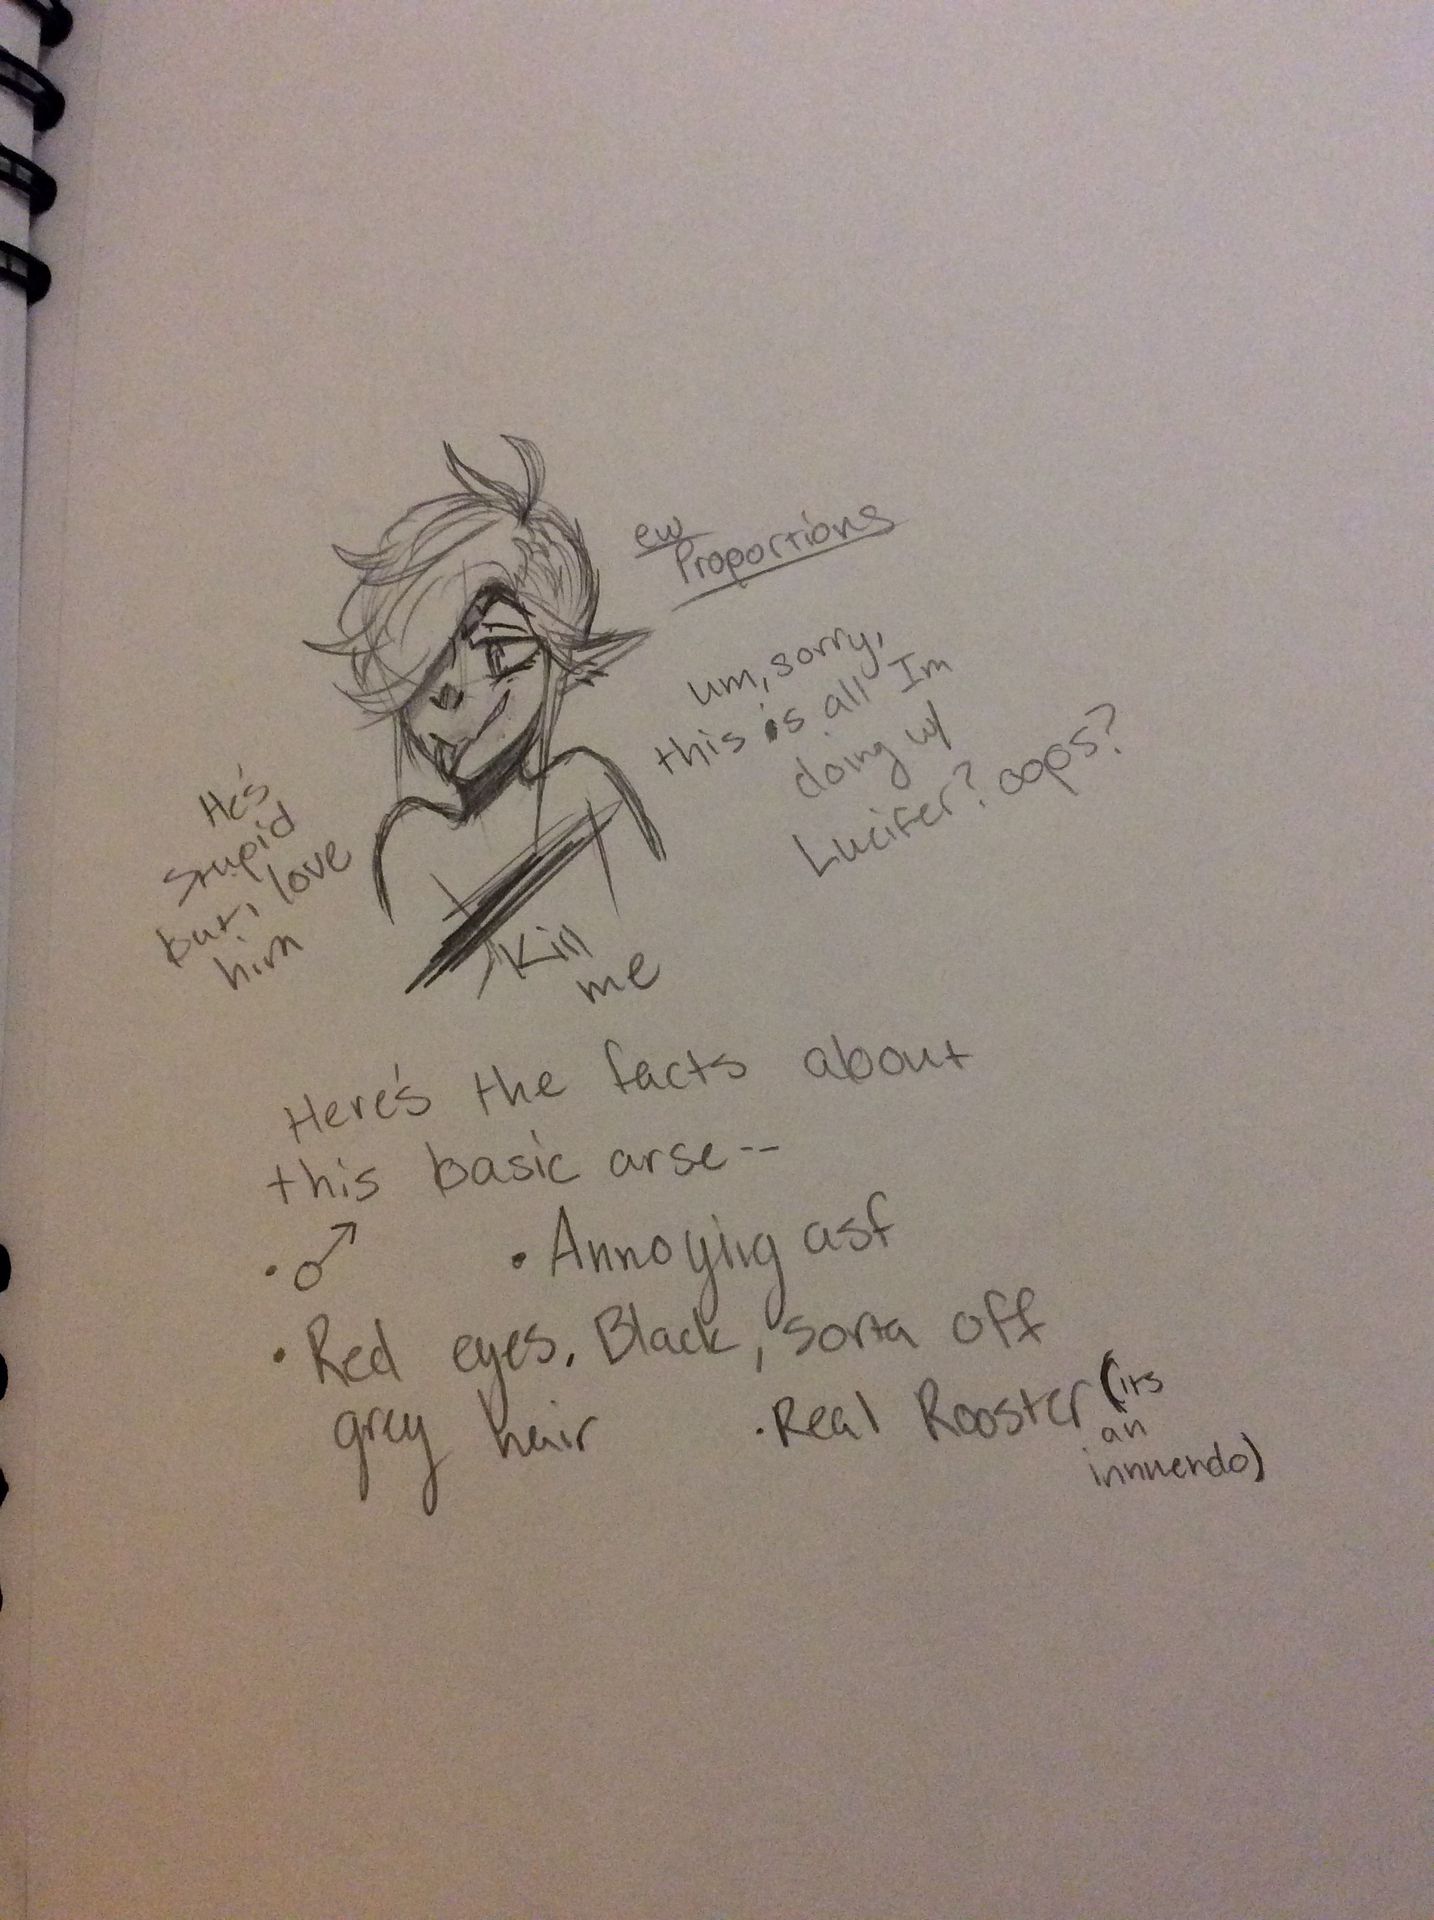 ew
Proportions
um, sorry,
this is all Im
doing w/
Lucifer? oops?
He's
stupid
but, love
him
Kill
me
Here's the facts about
this basic arse--
• ♂
• Annoying asf
• Red eyes. Black, sorta off
grey hair
• Real Rooster (its
an
innuendo)